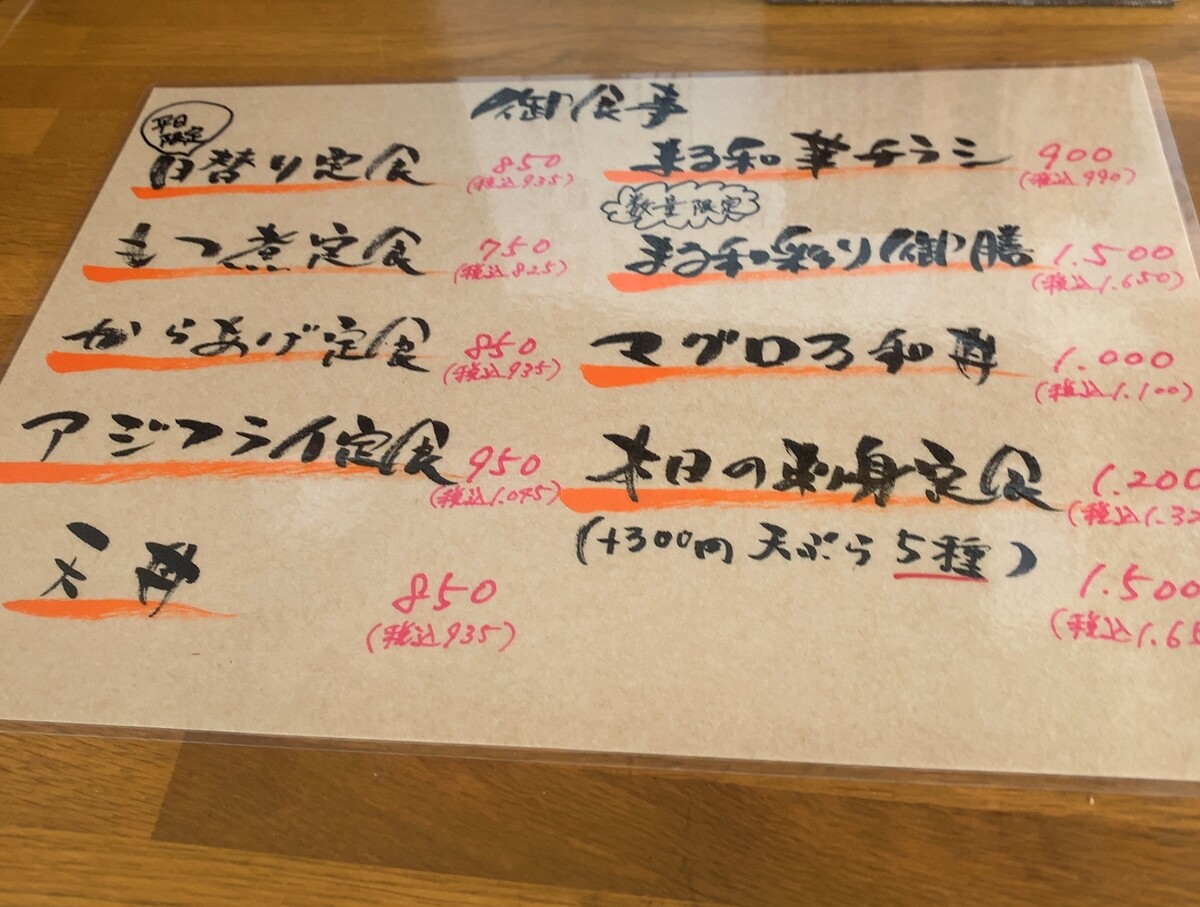 御食事
平日
限定
日替り定食 850
(税込935)
もつ煮定食 750
(税込825)
からあげ定食 850
(税込935)
アジフライ定食 950
(税込1.045)
天丼 850
(税込935)
まる和華チラシ 900
(税込990)
数量限定
まる和彩り御膳 1.500
(税込1.650)
マグロまる和丼 1.000
(税込1.100)
本日の刺身定食 1.200
(税込1.32
(+300円 天ぷら5種)
1.500
(税込1.65